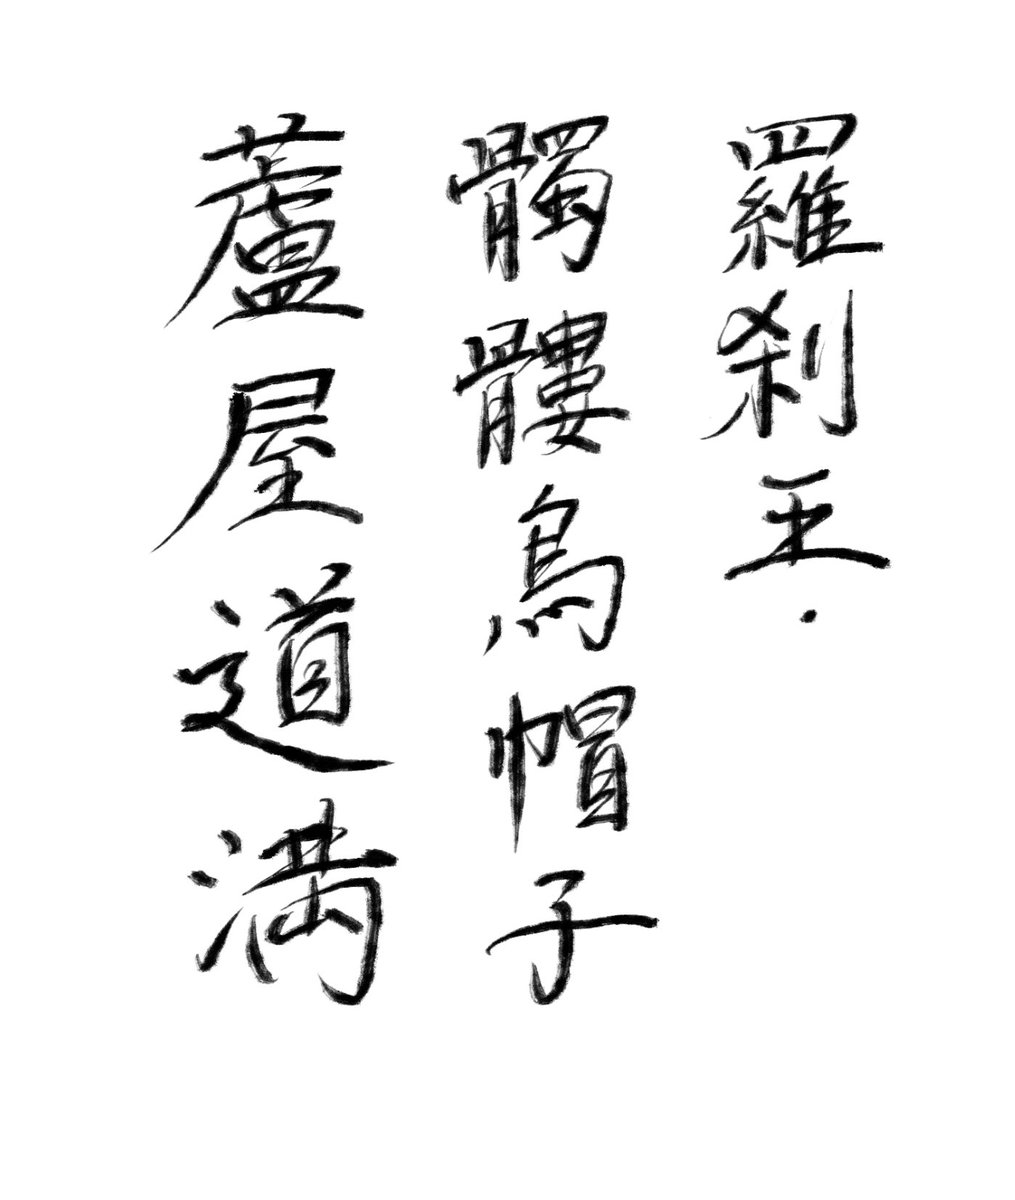 羅刹王・
髑髏烏帽子
蘆屋道満